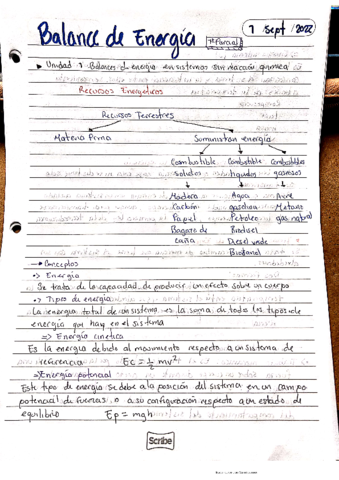 Balance de Energía 1er Parcial 7 Sept / 2022
▸ Unidad 1 Balances de energía en sistemas sin reacción química
Recursos Energéticos
Recursos Terrestres
Materia Prima Suministran energía
Combustible Combustible Combustibles
solidos liquidos gaseosos
Madera Agua Aire
Carbón gasolina Metano
Papel Petroleo gas natural
Bagazo de Biodisel
caña Diesel verde
Bioetanol
→ Conceptos
=> Energia
Se trata de la capacidad de producir un efecto sobre un cuerpo
=> Tipos de energia
La energía total de un sistema es la suma de todos los tipos de
energia que hay en el sistema
=> Energia cinetica
Es la energia debido al movimiento respecto a un sistema de
referencia Ec = 1/2 mv²
=> Energia potencial
Este tipo de energía se debe a la posición del sistema en un campo
potencial de fuerzas, o a su configuración respecto a un estado de
equilibrio Ep = mgh
Scribe